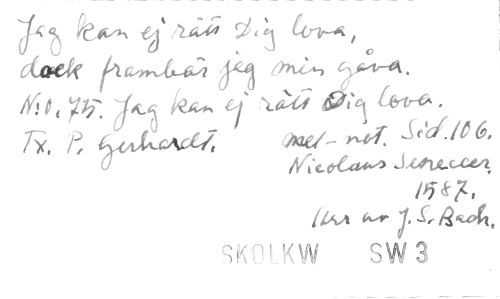 Jag kan ej rätt Dig lova,
dock frambär jag min gåva.
N:o. 75. Jag kan ej rätt Dig lova.
Tx. P. Gerhardt. mel-not. Sid. 106.
Nicolaus Seneccer.
1587.
Arr av J. S. Bach.
SKOLKW SW 3